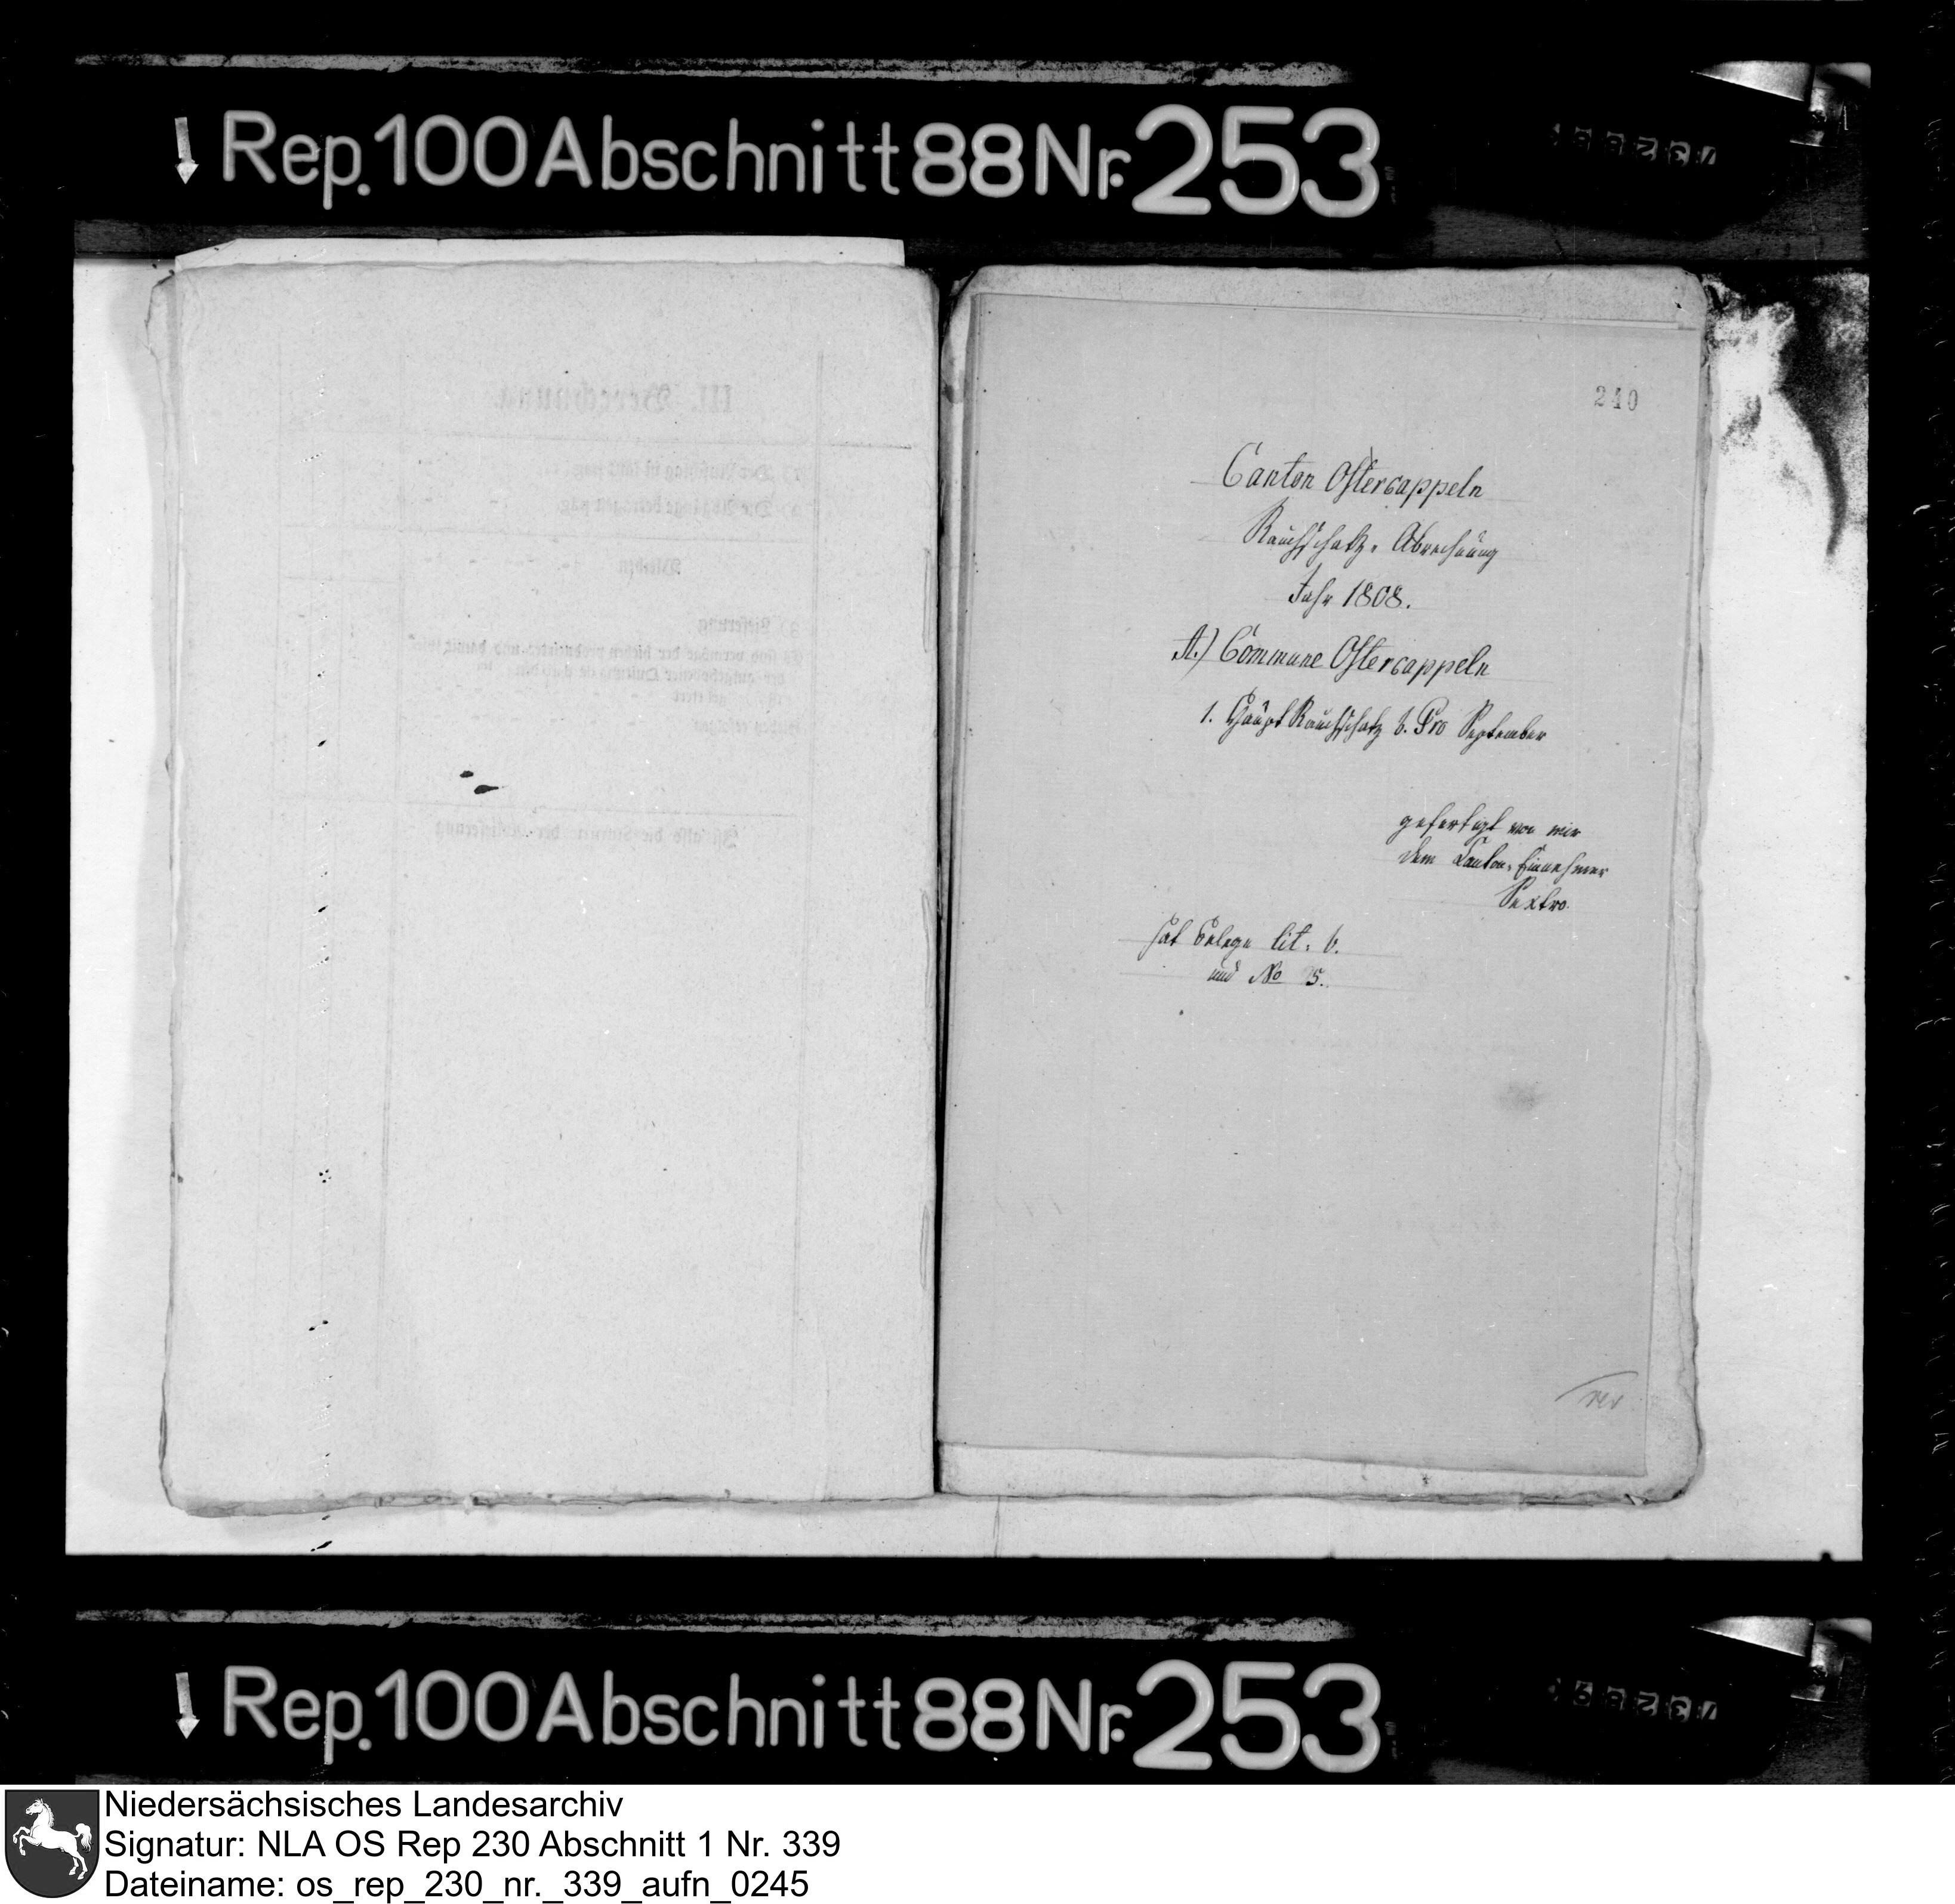 Rep. 100 Abschnitt 88 Nr. 253
240
Canton Ostercappeln
Rauchschatz-Abrechnung
Jahr 1808.
A.) Commune Ostercappeln
1. Haupt Rauchschatz b. Pro September
gefertigt von mir
dem Canton-Einnehmer
Sextro
hat Belege lit. b.
und No 5.
rev
III. Berechnung
Mithin
Lieferung
Rep. 100 Abschnitt 88 Nr. 253
Niedersächsisches Landesarchiv
Signatur: NLA OS Rep 230 Abschnitt 1 Nr. 339
Dateiname: os_rep_230_nr._339_aufn_0245